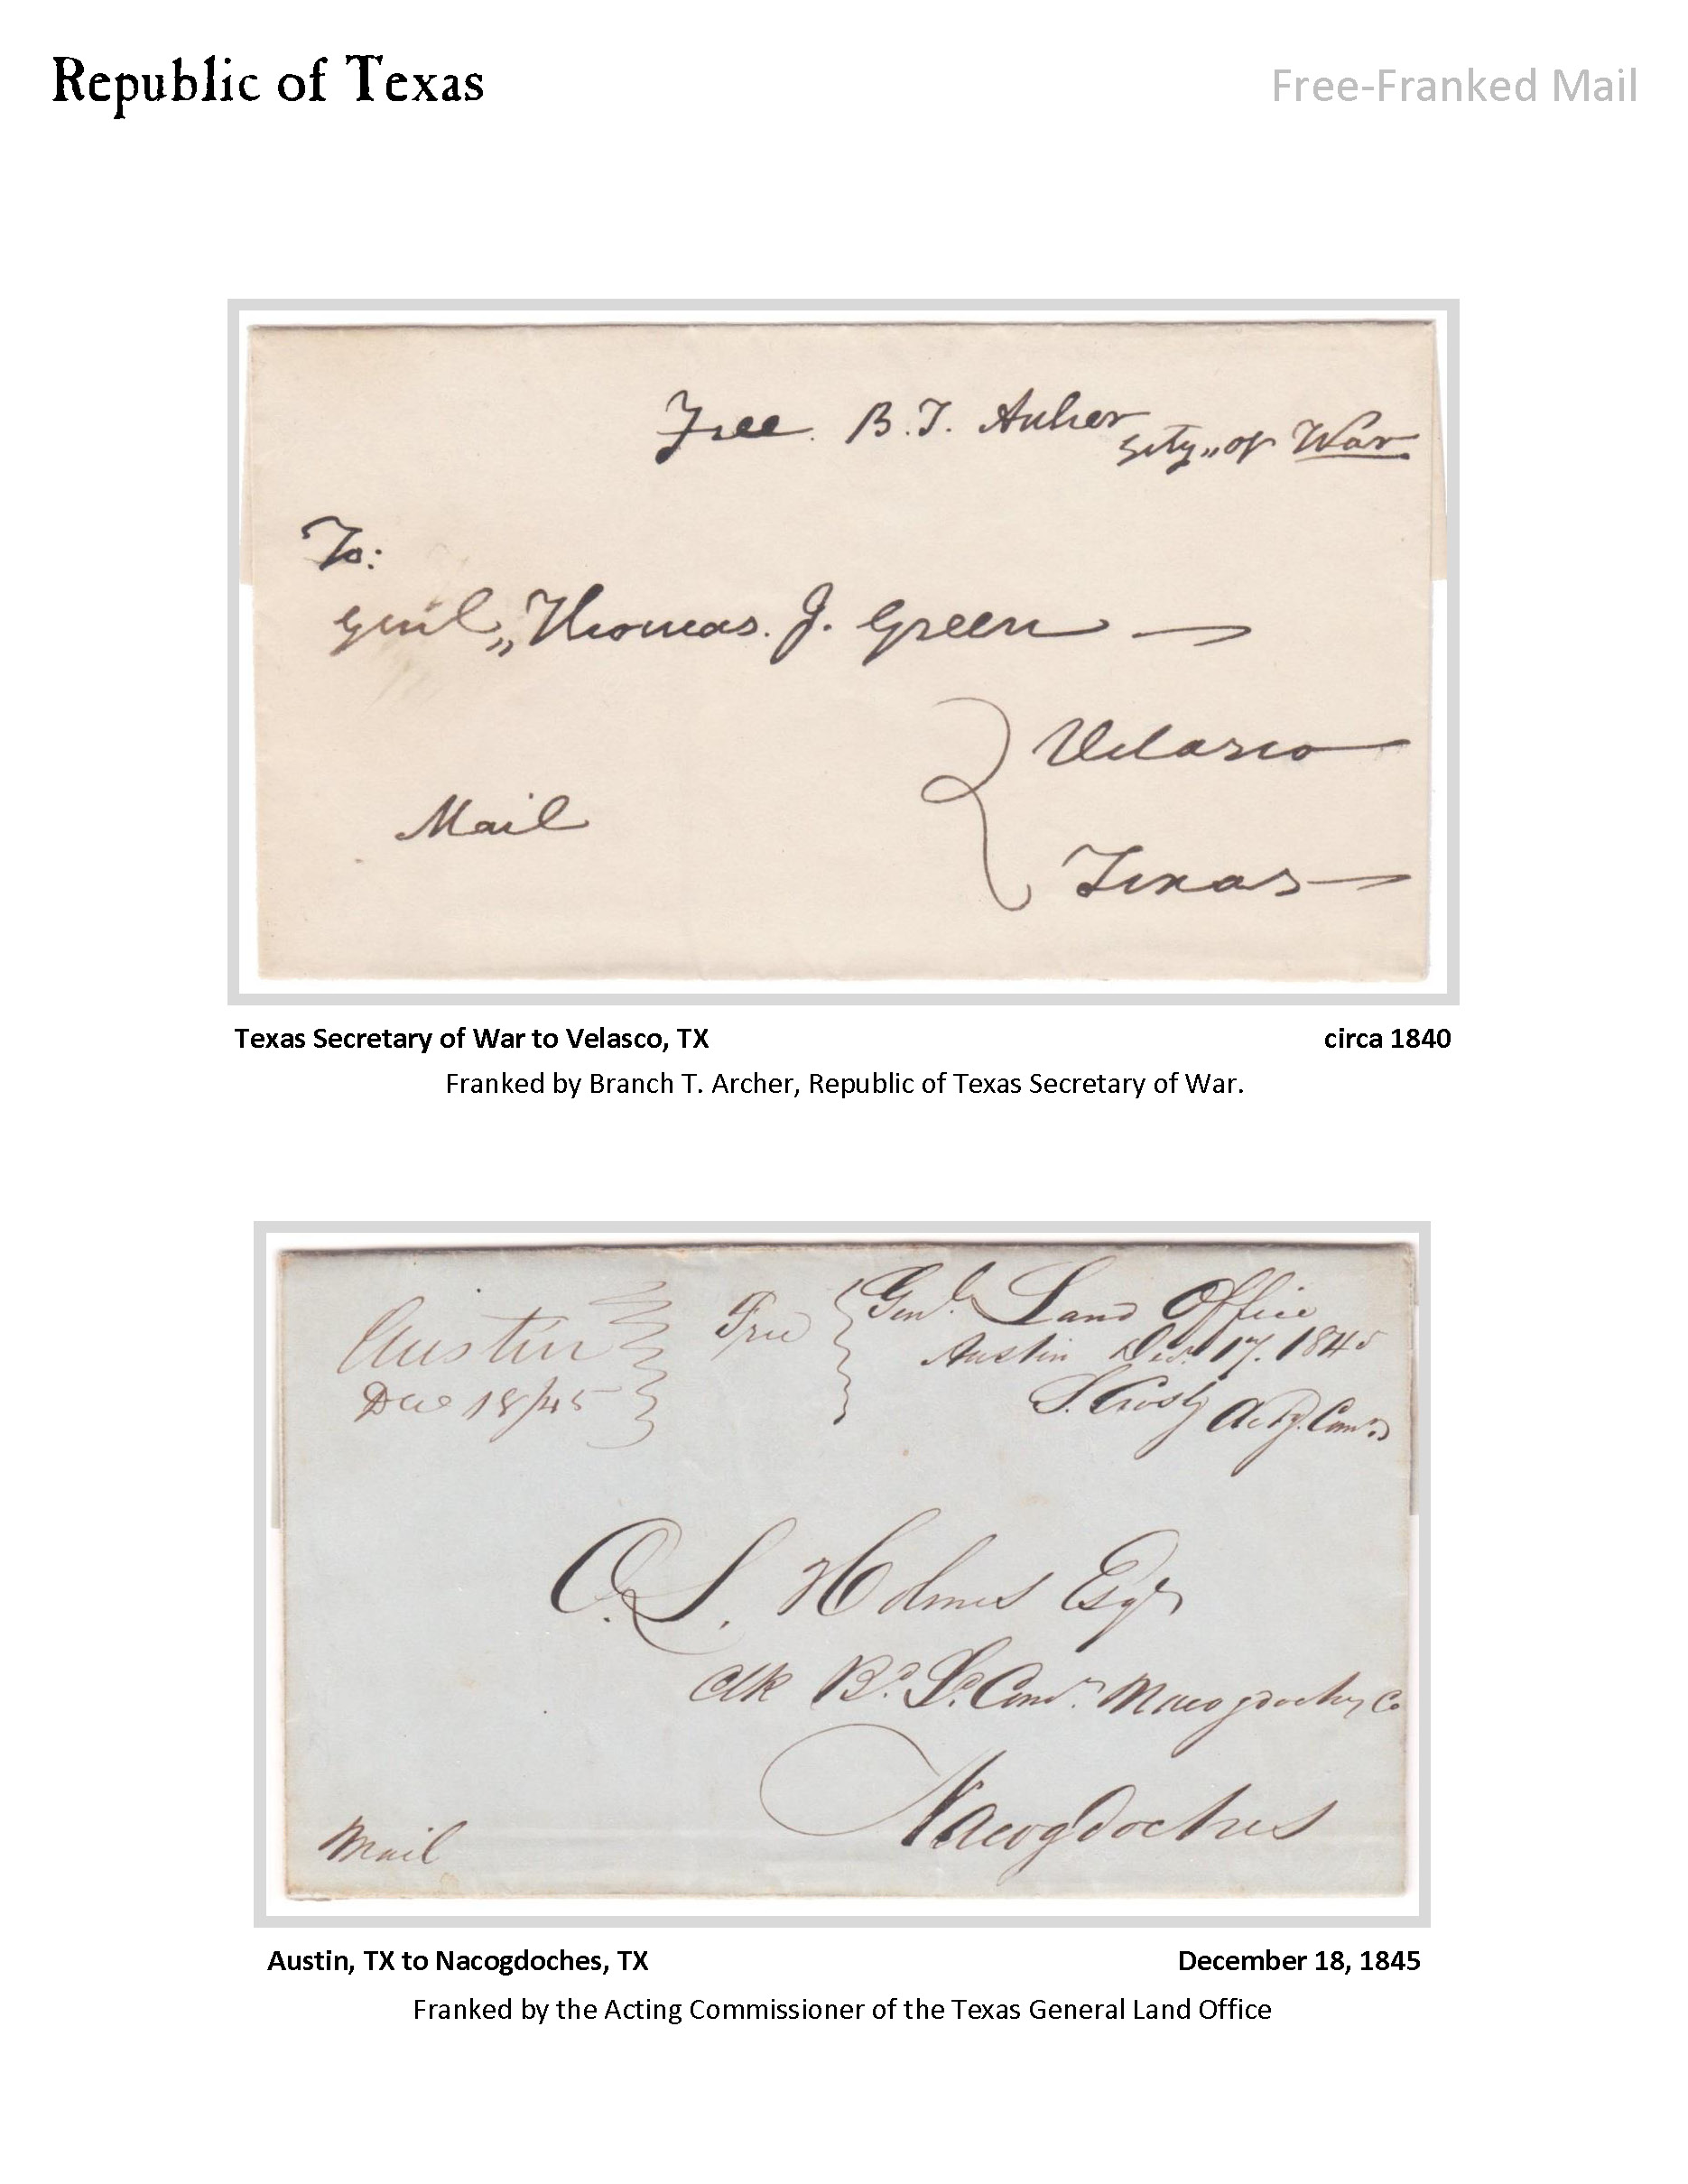 Republic of Texas
Free-Franked Mail
Free. B. T. Archer
Scty,, of War
To:
Genl,, Thomas. J. Green
Velasco
Mail
Texas
Texas Secretary of War to Velasco, TX
circa 1840
Franked by Branch T. Archer, Republic of Texas Secretary of War.
Austin
Dec 18/45
Free
Genl. Land Office
Austin Dec. 17. 1845
S. Crosby Actg. Comr.
O. L. Holmes Esqr
Clk Bd. Ld. Comr. Nacogdoches Co
Nacogdoches
Mail
Austin, TX to Nacogdoches, TX
December 18, 1845
Franked by the Acting Commissioner of the Texas General Land Office